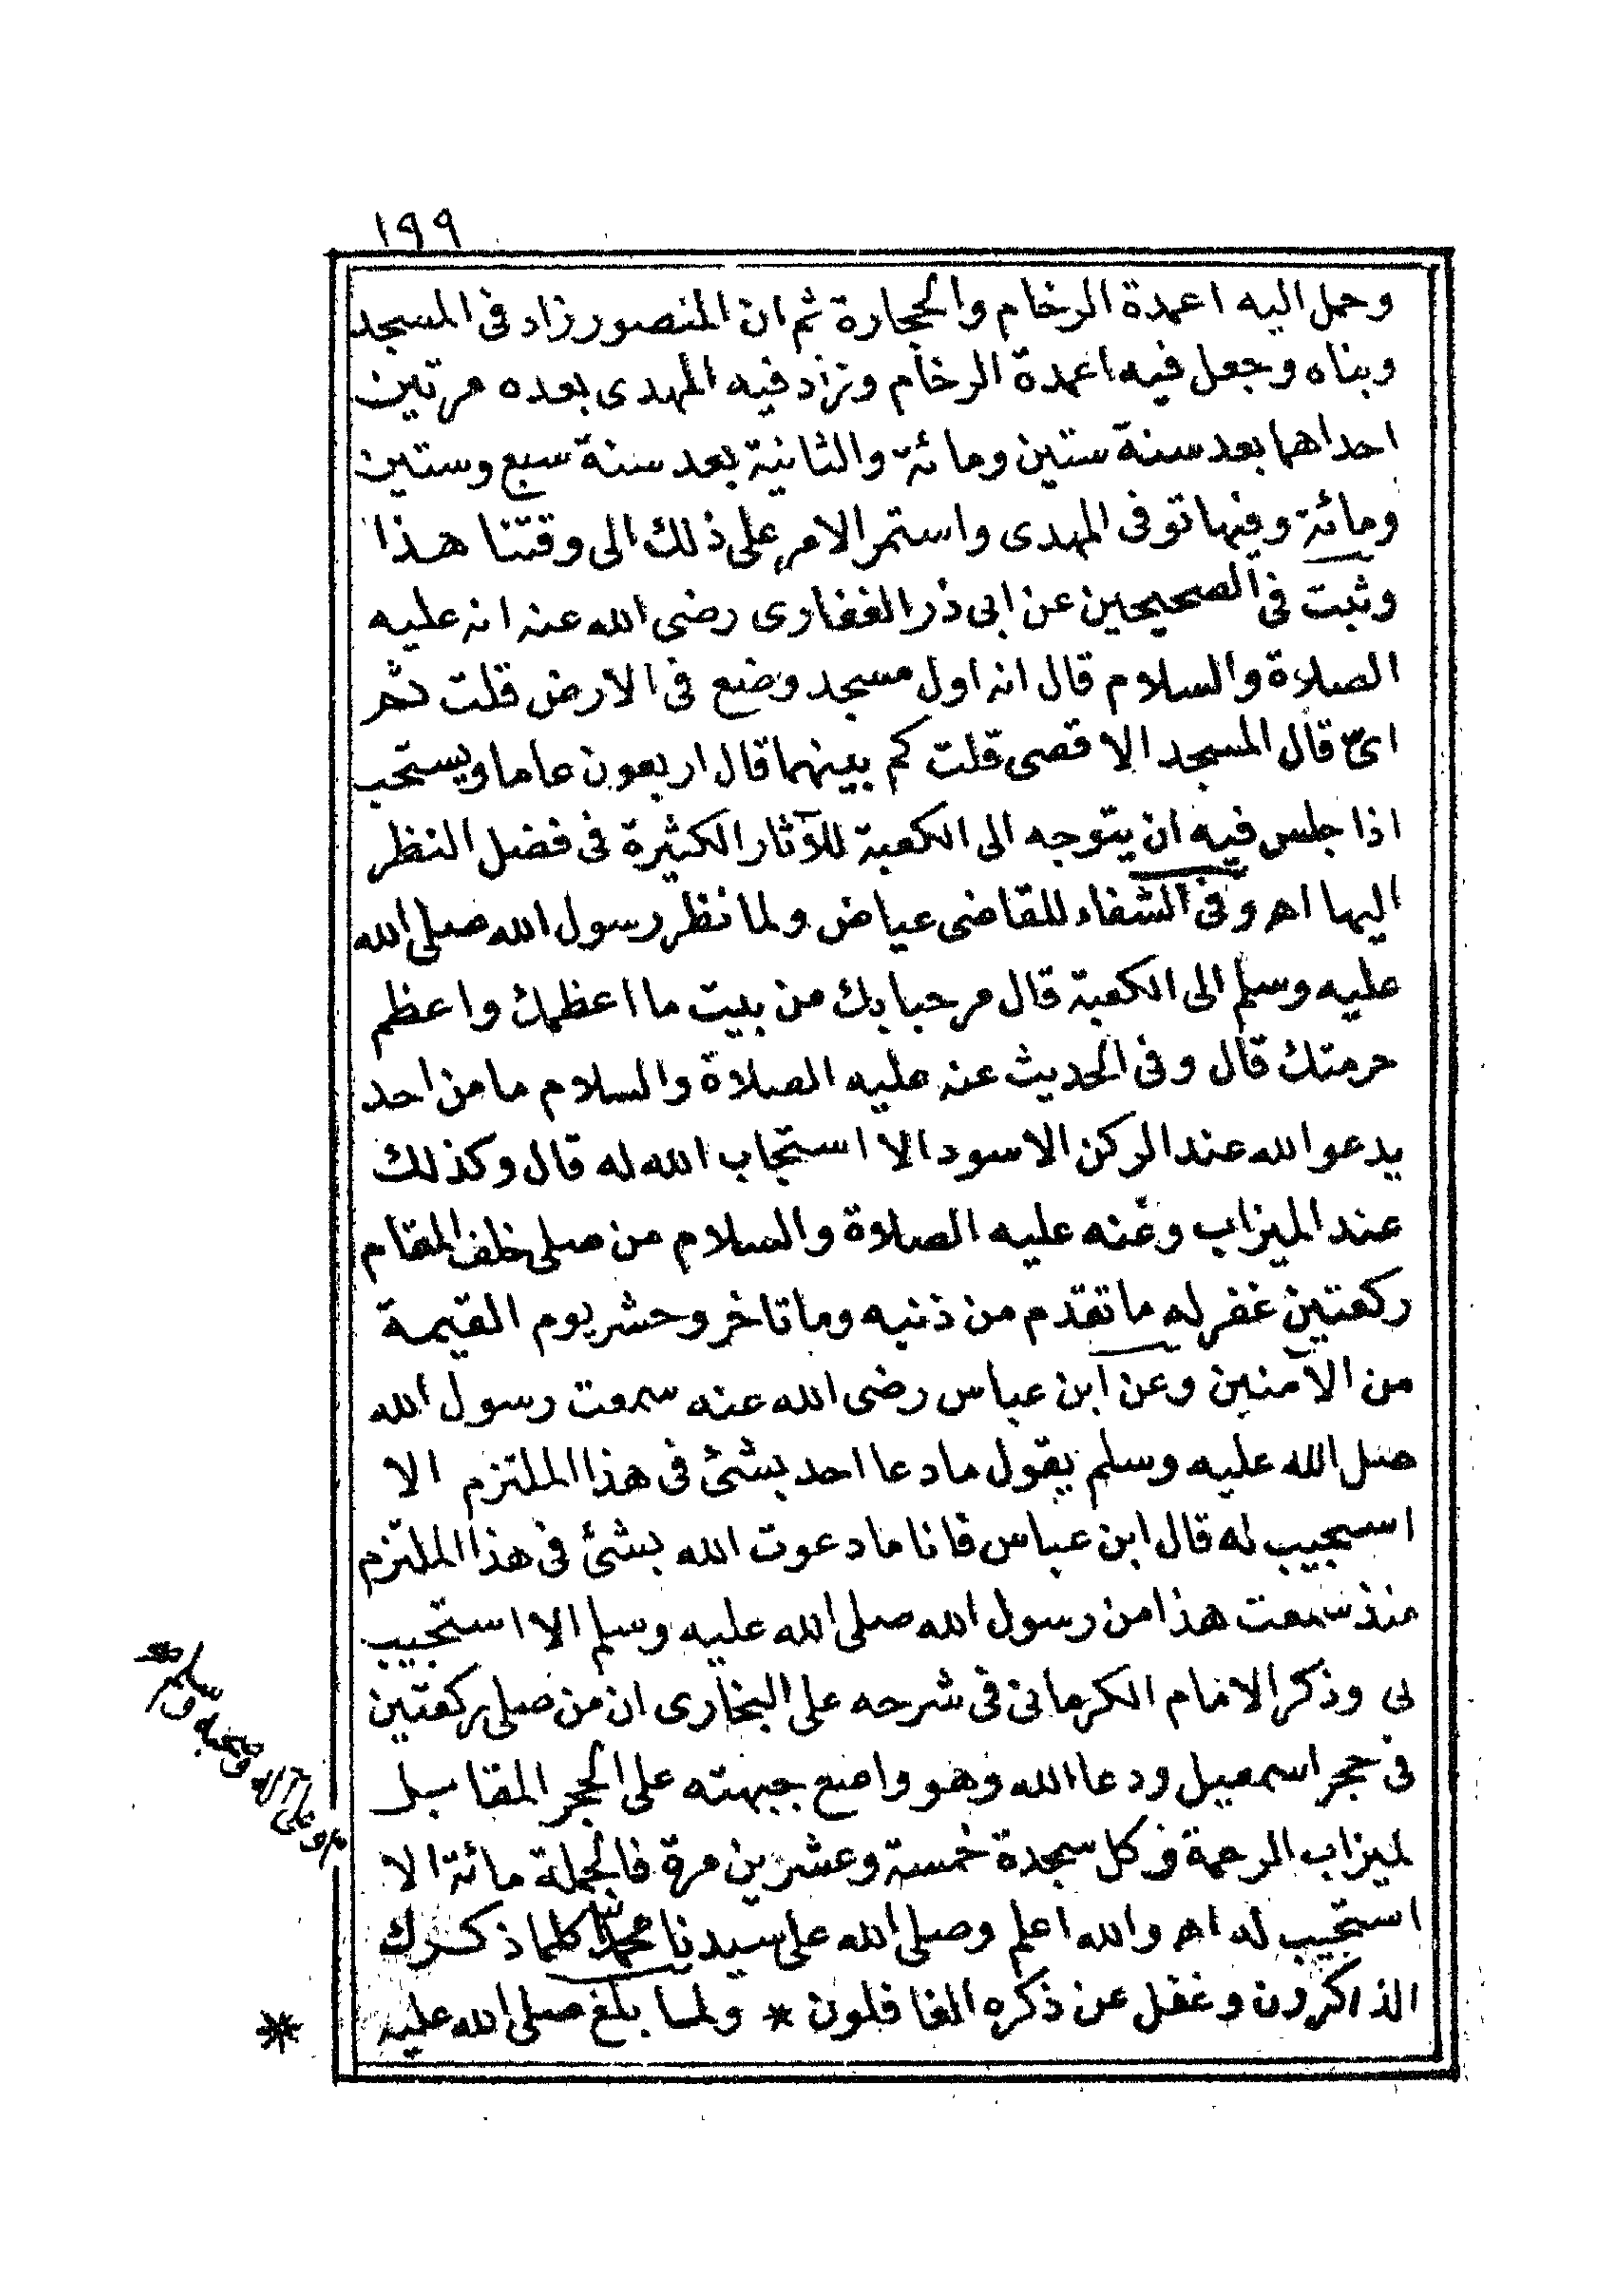 ١٩٩
وحمل اليه اعمدة الرخام والحجارة ثم ان المنصور زاد فى المسجد
وبناه وجعل فيه اعمدة الرخام وزاد فيه المهدى بعده مرتين
احداهما بعد سنة ستين ومائة والثانية بعد سنة سبع وستين
ومائة وفيها توفى المهدى واستمر الامر على ذلك الى وقتنا هذا
وثبت فى الصحيحين عن ابى ذر الغفارى رضى الله عنه انه عليه
الصلاة والسلام قال انه اول مسجد وضع فى الارض قلت ثم
اىّ قال المسجد الاقصى قلت كم بينهما قال اربعون عاما ويستحب
اذا جلس فيه ان يتوجه الى الكعبة للآثار الكثيرة فى فضل النظر
اليها اهـ وفى الشفاء للقاضى عياض ولما نظر رسول الله صلى الله
عليه وسلم الى الكعبة قال مرحبا بك من بيت ما اعظمك واعظم
حرمتك قال وفى الحديث عنه عليه الصلاة والسلام ما من احد
يدعو الله عند الركن الاسود الا استجاب الله له قال وكذلك
عند الميزاب وعنه عليه الصلاة والسلام من صلى خلف المقام
ركعتين غفر له ما تقدم من ذنبه وما تاخر وحشر يوم القيمة
من الآمنين وعن ابن عباس رضى الله عنه سمعت رسول الله
صلى الله عليه وسلم يقول ما دعا احد بشئ فى هذا الملتزم الا
استجيب له قال ابن عباس فانا ما دعوت الله بشئ فى هذا الملتزم
منذ سمعت هذا من رسول الله صلى الله عليه وسلم الا استجيب
لى وذكر الامام الكرمانى فى شرحه على البخارى ان من صلى ركعتين
فى حجر اسمعيل ودعا الله وهو واضع جبهته على الحجر المقابل
لميزاب الرحمة فى كل سجدة خمسة وعشرين مرة فالجملة مائة الا
استجيب له اهـ والله اعلم وصلى الله على سيدنا محمد كلما ذكرك
الذاكرون وغفل عن ذكره الغافلون * ولما بلغ صلى الله عليه
وعلى آله وصحبه وسلم صح
*